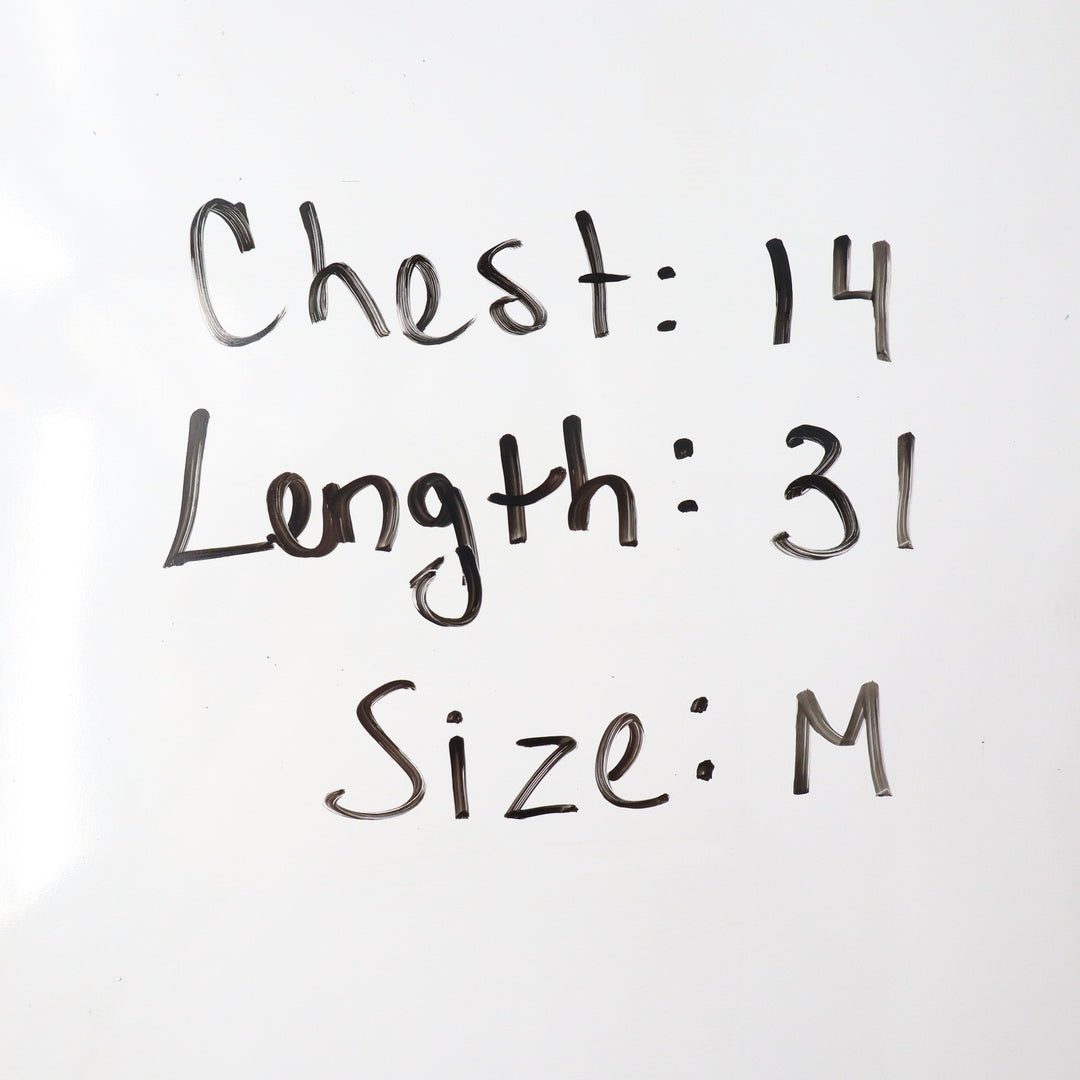 Chest: 14
Length: 31
Size: M